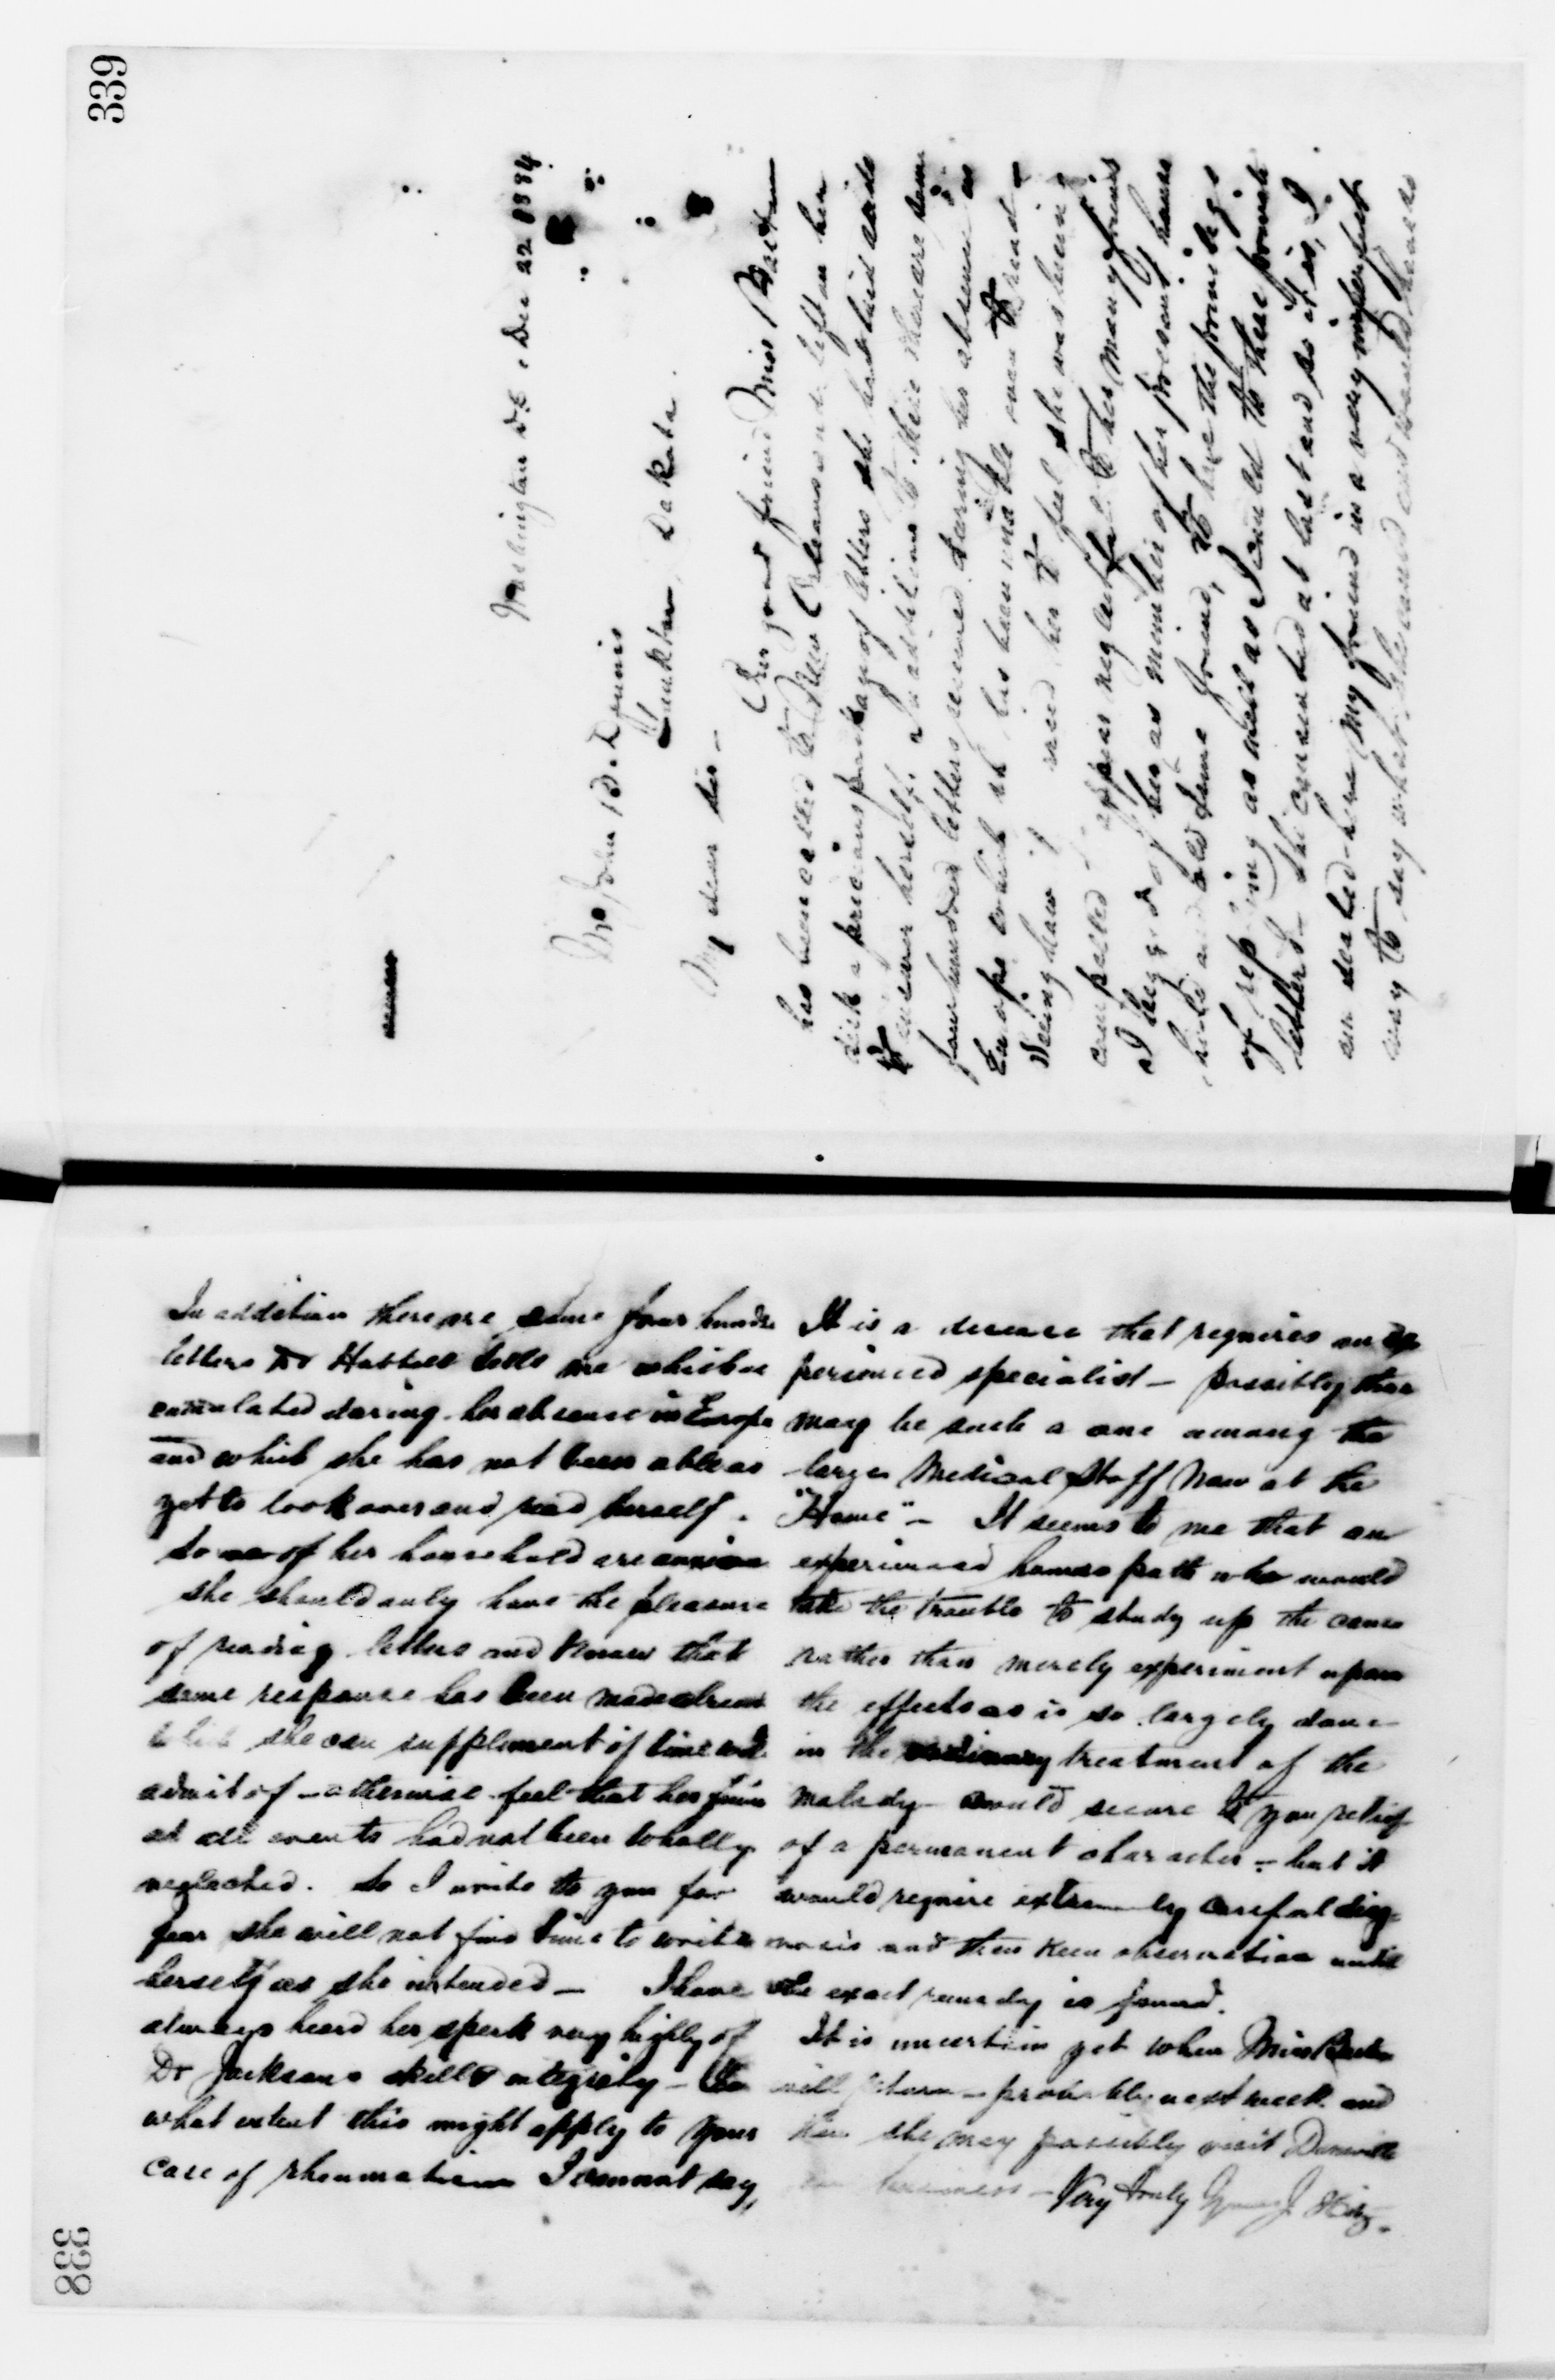 339
Washington D.C. Dec 22 1884
Mr John B. Dennis
Yankton, Dakota.
My dear Sir –
Our good friend Miss Barton
has been called to New Orleans and left in her
desk a precious package of letters she had laid aside
to answer herself. In addition to these there are some
four hundred letters received during her absence in
Europe which she has been unable even to read –
Seeing how it
compelled appear neglectful to her many friends
I begged of her as member of her present house
hold and old time friend, to have the privilege
of replying as well as I could to these private
letters – She consented at last and so it is, I
am seated here My friend in a very imperfect
way to say what she could and would have
In addition there are some four hundred
letters Dr Hubbell tells me which ac
cumulated during her absence in Europe
and which she has not been able as
yet to look over and read herself.
So we of her household are anxious
she should only have the pleasure
of reading letters and know that
some response has been made already
while she can supplement if time will
admit of – otherwise feel that her friends
at all events had not been wholly
neglected. So I write to you for
fear she will not find time to write
herself as she intended – I have
always heard her speak very highly of
Dr Jacksons skill & integrity – To
what extent this might apply to your
case of rheumatism I cannot say,
It is a disease that requires an ex
perienced specialist – possibly there
may be such a one among the
large Medical Staff now at the
"Home" – It seems to me that an
experienced homeopath who would
take the trouble to study up the cause
rather than merely experiment upon
the effects as is so largely done
in the ordinary treatment of the
malady – would secure to you relief
of a permanent character – but it
would require extremely careful diag-
nosis and then keen observation until
the exact remedy is found.
It is uncertain yet when Miss Barton
will return – probably next week and
then she may possibly visit Dansville
on business – Very truly Yours J. Hitz –
338